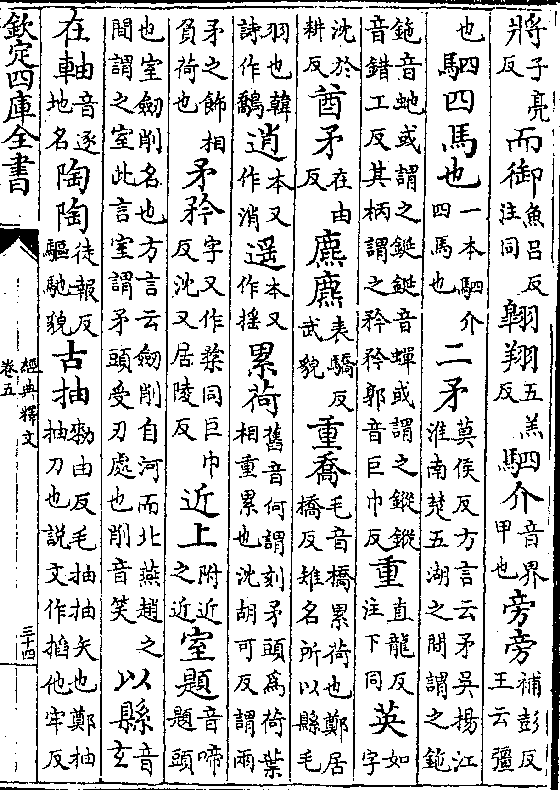 將子亮反而御魚呂反注同翱翔五羔反駟介音界甲也旁旁補彭反王云彊
也駟四馬也一本駟介四馬也二矛莫侯反方言云矛吳揚江淮南楚五湖之間謂之鉇
鉇音虵或謂之鋋鋋音蟬或謂之鏦鏦音錯工反其柄謂之矜矜郭音巨巾反重直龍反注下同英如字
沈於耕反酋矛在由反麃麃表驕反武貌重喬毛音橋累荷也鄭居橋反雉名所以縣毛
羽也韓詩作鷮逍本又作消遥本又作摇累荷舊音何謂刻矛頭爲荷葉相重累也沈胡可反謂兩
矛之飾相負荷也矛矜字又作同巨巾反沈又居陵反近上附近之近室題音啼題頭
也室劒削名也方言云劒削自河而北燕趙之間謂之室此言室謂矛頭受刃處也削音笑以縣音玄
在軸音逐地名陶陶徒報反驅馳貌古抽勑由反毛抽抽矢也鄭抽抽刀也説文作搯他牢反
欽定四庫全書
經典釋文
卷五
三十四